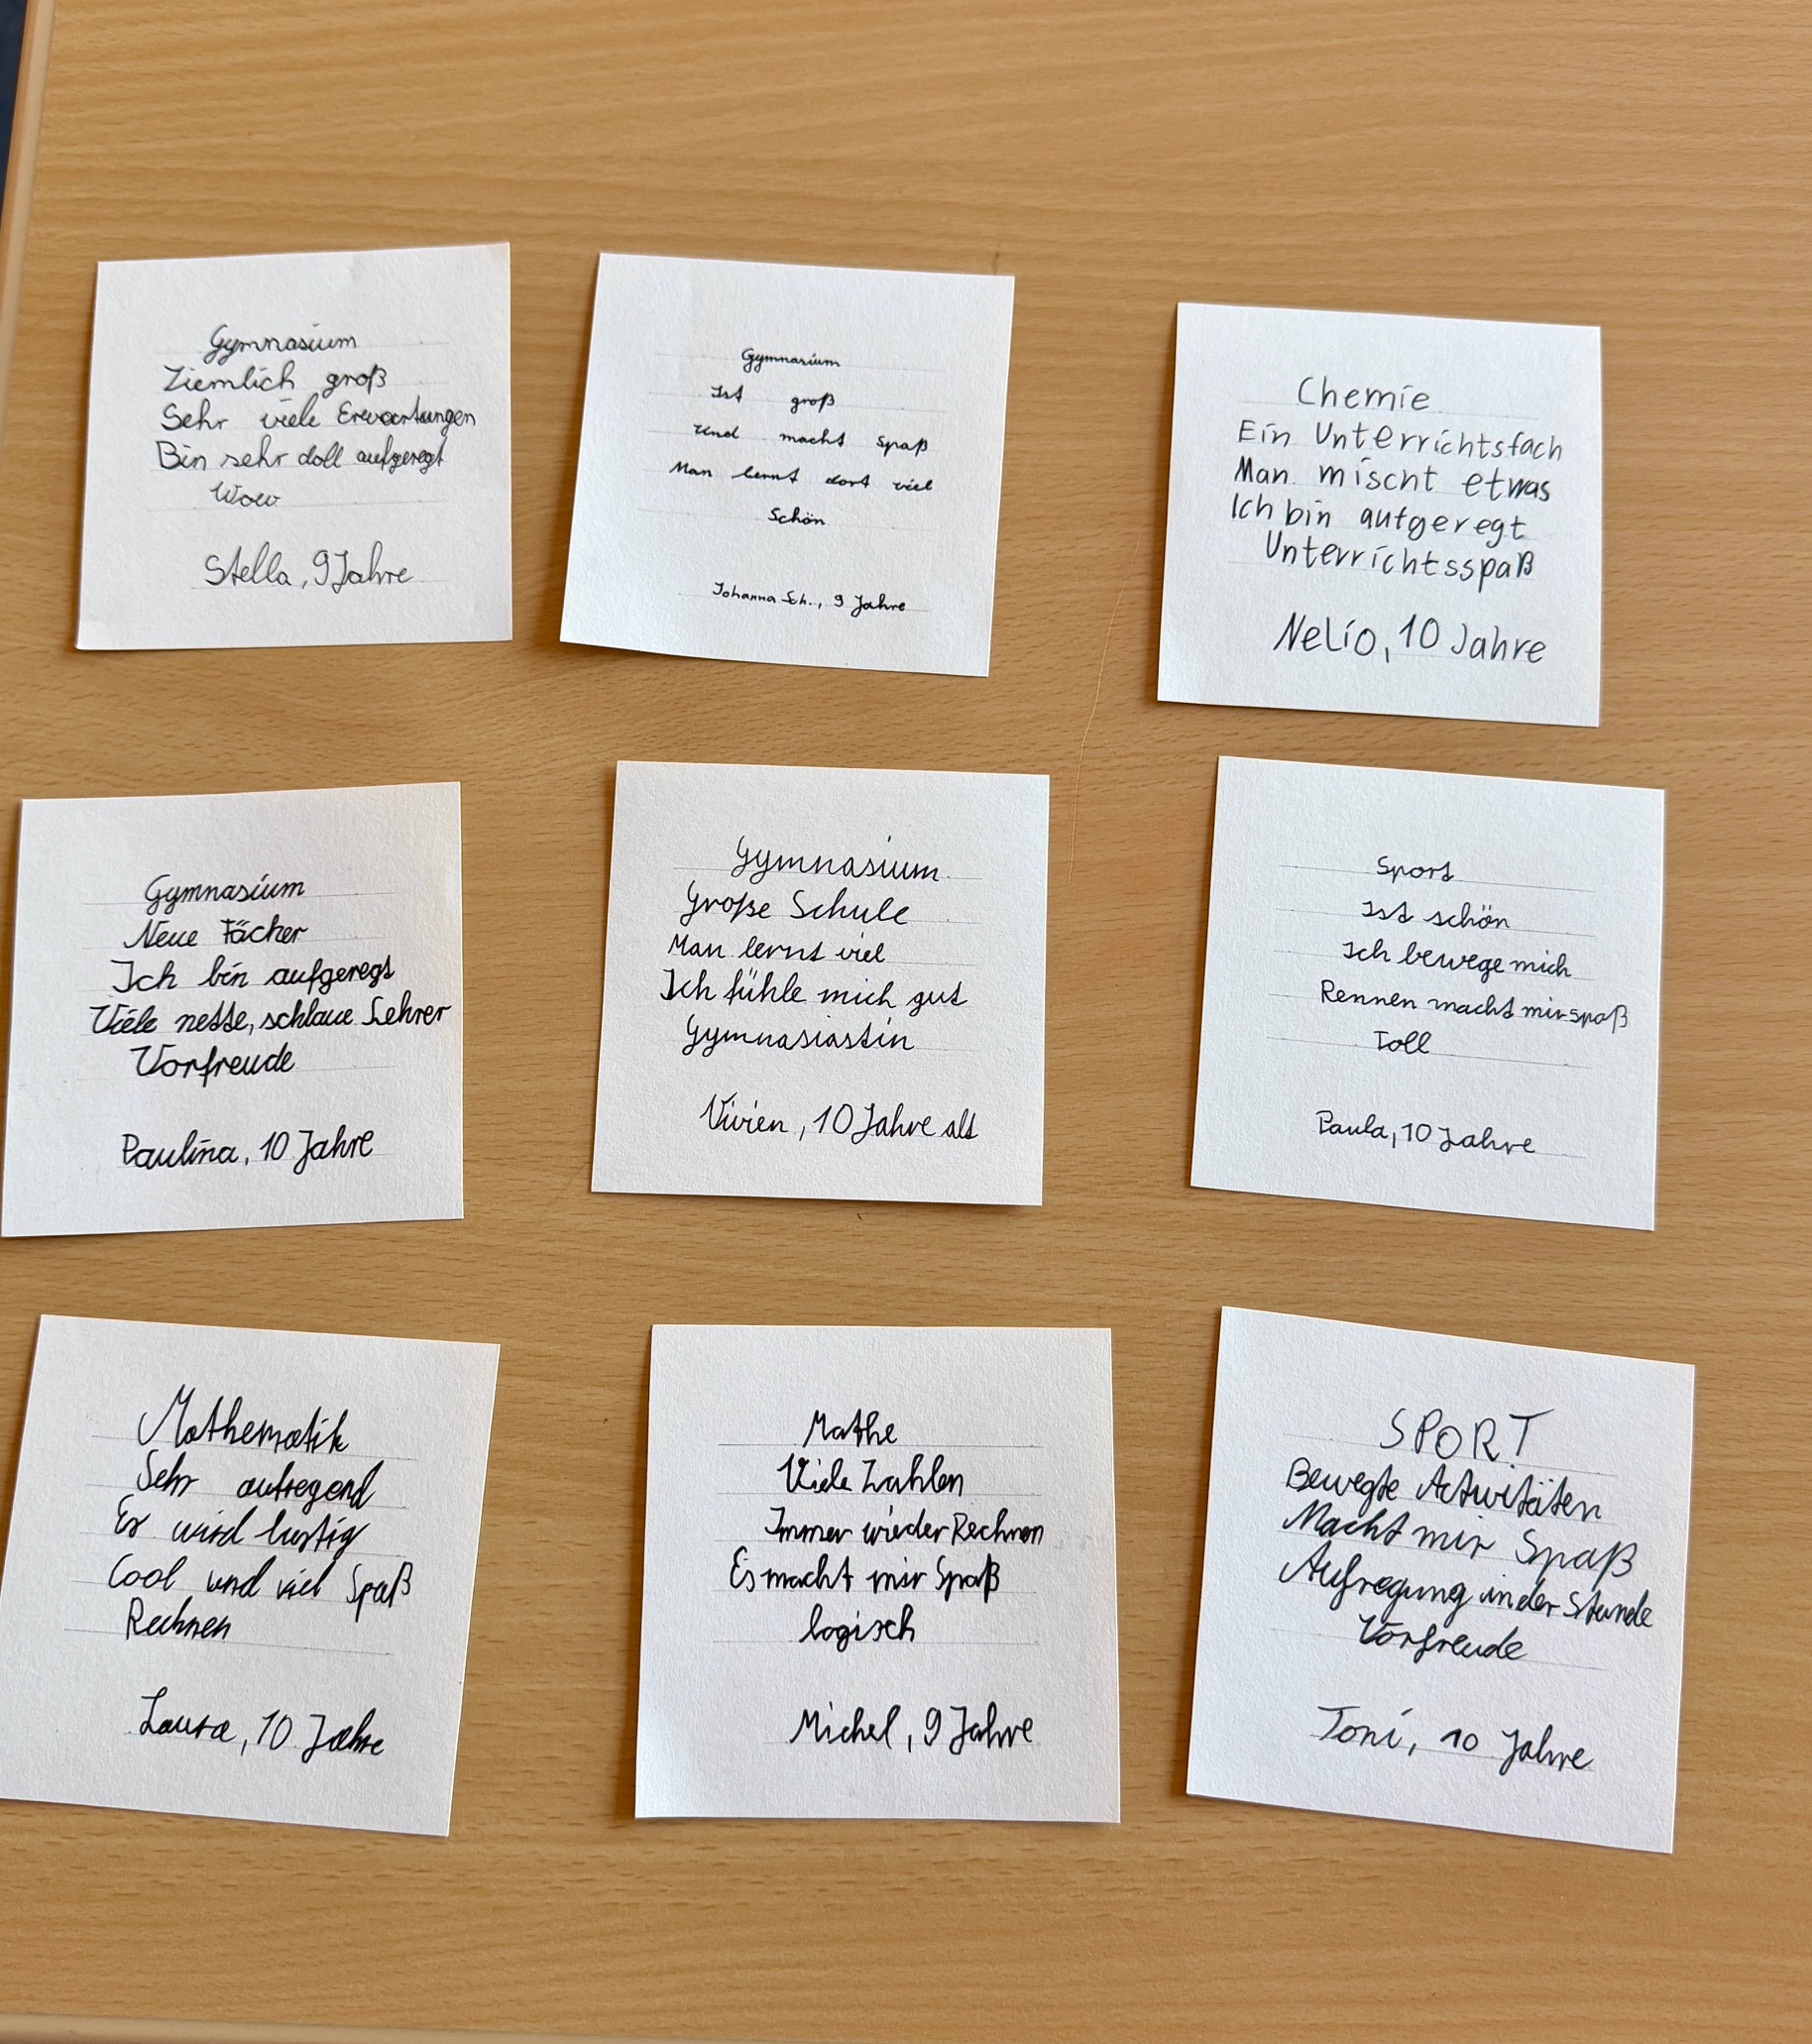 Gymnasium
Ziemlich groß
Sehr viele Erwartungen
Bin sehr doll aufgeregt
Wow
Stella, 9 Jahre
Gymnasium
Ist groß
Und macht Spaß
Man lernt dort viel
Schön
Johanna Sch., 9 Jahre
Chemie
Ein Unterrichtsfach
Man mischt etwas
Ich bin aufgeregt
Unterrichtsspaß
Nelio, 10 Jahre
Gymnasium
Neue Fächer
Ich bin aufgeregt
Viele nette, schlaue Lehrer
Vorfreude
Paulina, 10 Jahre
Gymnasium
Große Schule
Man lernt viel
Ich fühle mich gut
Gymnasiastin
Vivien, 10 Jahre alt
Sport
Ist schön
Ich bewege mich
Rennen macht mir spaß
Toll
Paula, 10 Jahre
Mathematik
Sehr aufregend
Es wird lustig
Cool und viel Spaß
Rechnen
Laura, 10 Jahre
Mathe
Viele Zahlen
Immer wieder Rechnen
Es macht mir Spaß
logisch
Michel, 9 Jahre
SPORT
Bewegte Activitäten
Macht mir Spaß
Aufregung in der Stunde
Vorfreude
Toni, 10 Jahre